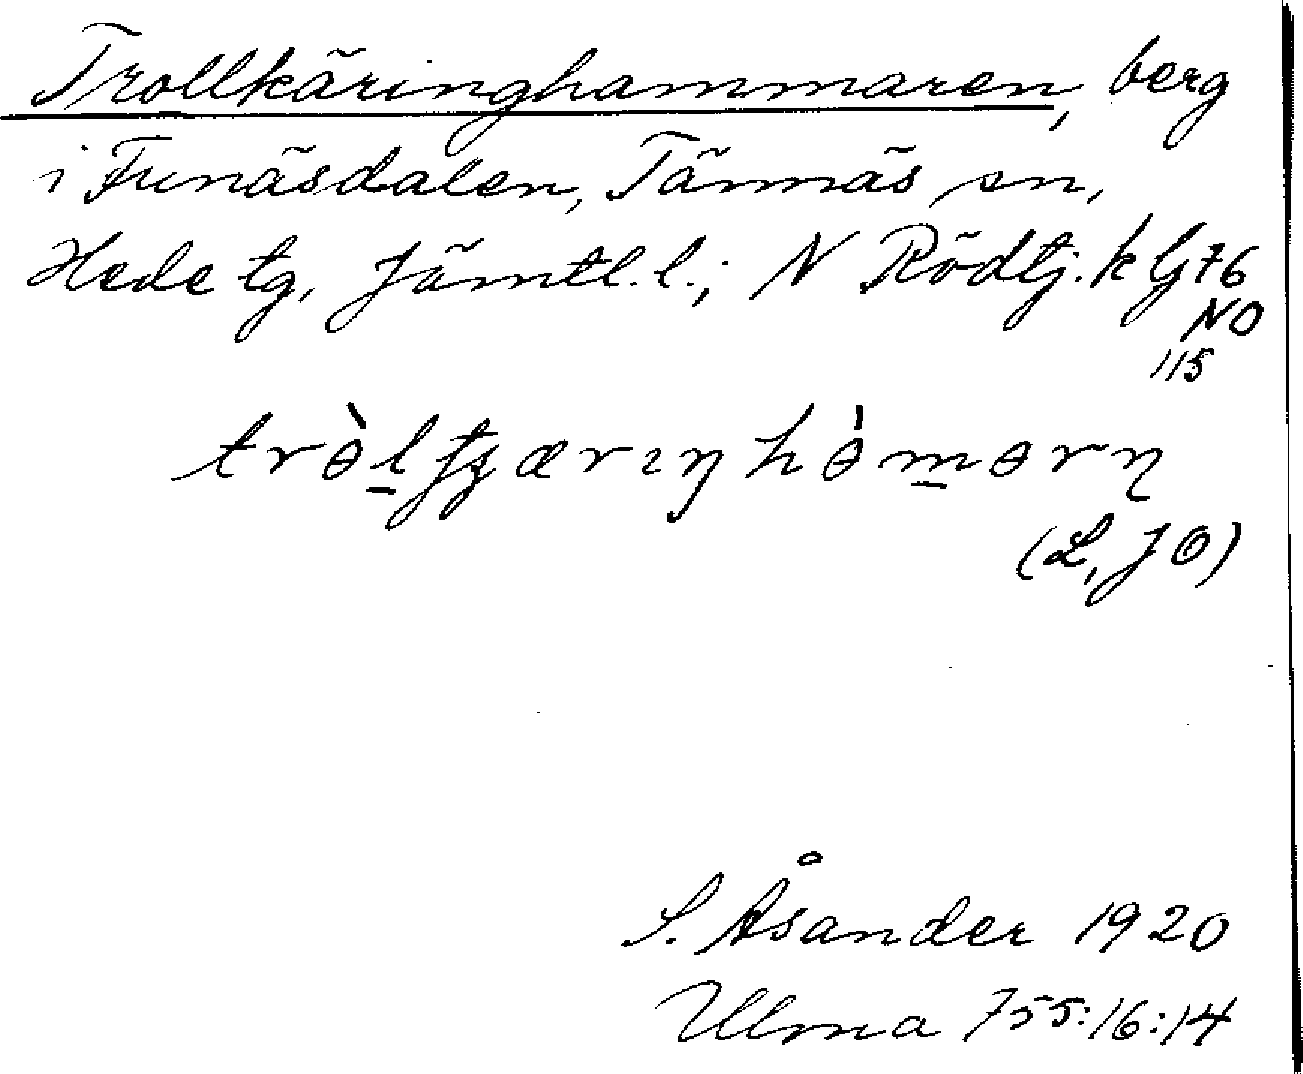 Trollkäringhammaren, berg
i Funäsdalen, Tännäs sn,
Hede tg, Jämtl. l.; N Rödtj. k Gj 76
NO
115
(L, JO)
S. Åsander 1920
Ulma 755:16:14